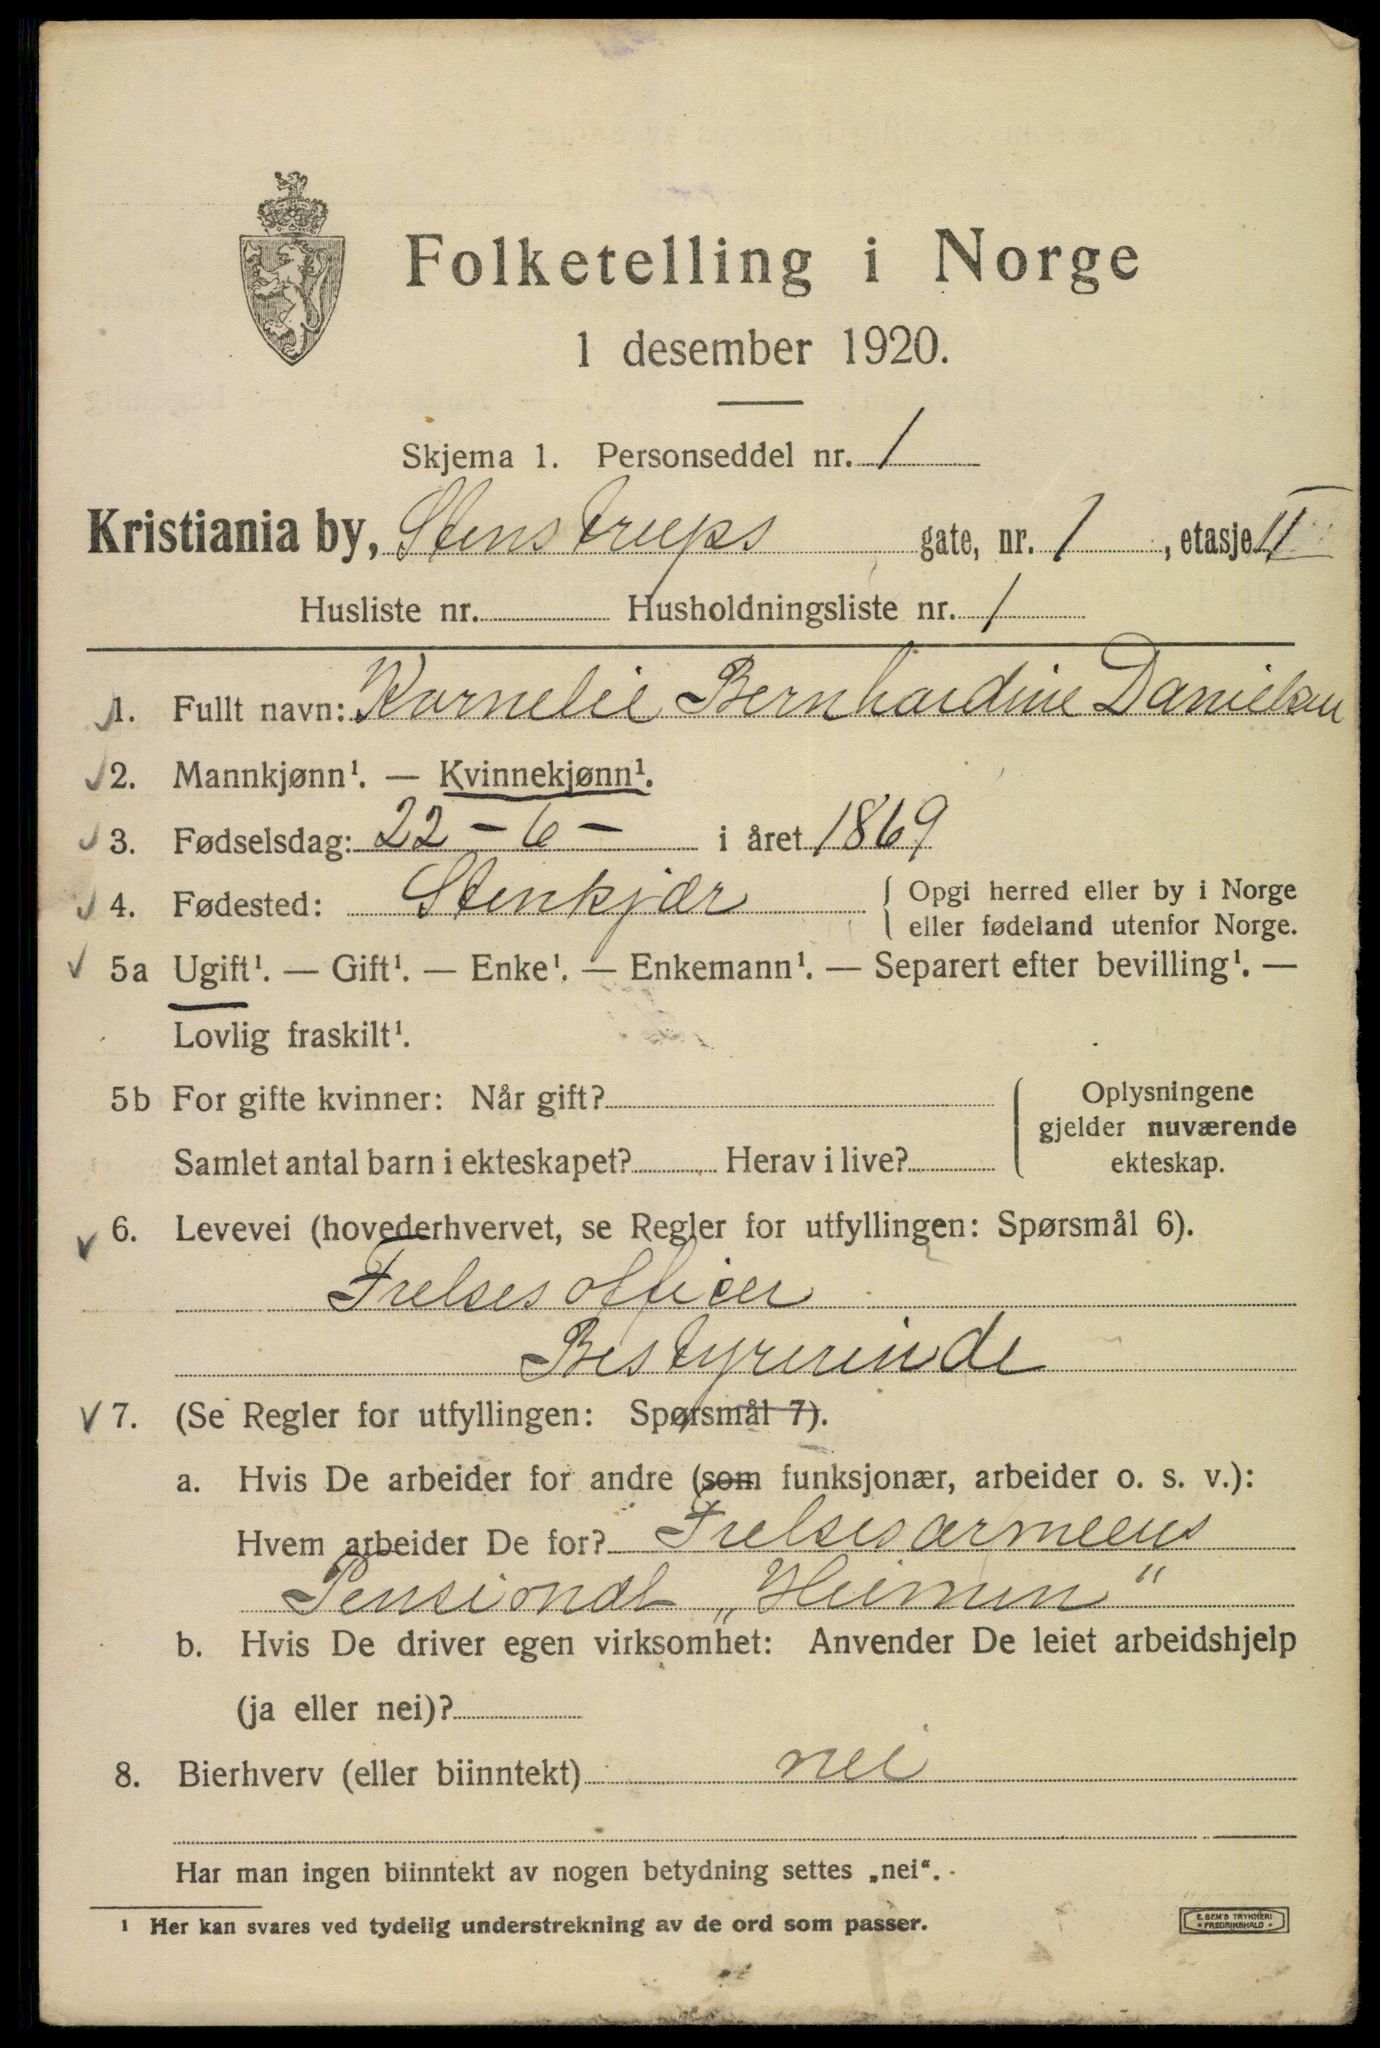 Folketelling i Norge
1 desember 1920.
Skjema 1. Personseddel nr. 1
Kristiania by, Stenstrups gate, nr. 1, etasje II
Husliste nr. Husholdningsliste nr. 1
1. Fullt navn: Kornelie Bernhardine Danielsen
2. Mannkjønn¹. — Kvinnekjønn¹.
3. Fødselsdag: 22 - 6 - i året 1869
4. Fødested: Stenkjær { Opgi herred eller by i Norge
eller fødeland utenfor Norge.
5a Ugift¹. — Gift¹. — Enke¹. — Enkemann¹. — Separert efter bevilling¹. —
Lovlig fraskilt¹.
5b For gifte kvinner: Når gift?
Samlet antal barn i ekteskapet? Herav i live?
Oplysningene
gjelder nuværende
ekteskap.
6. Levevei (hovederhvervet, se Regler for utfyllingen: Spørsmål 6).
Frelsesofficer
Bestyrerinde
7. (Se Regler for utfyllingen: Spørsmål 7).
a. Hvis De arbeider for andre (som funksjonær, arbeider o. s. v.):
Hvem arbeider De for? Frelsesarmeens
Pensionat „Heimen"
b. Hvis De driver egen virksomhet: Anvender De leiet arbeidshjelp
(ja eller nei)?
8. Bierhverv (eller biinntekt) nei
Har man ingen biinntekt av nogen betydning settes „nei“.
¹ Her kan svares ved tydelig understrekning av de ord som passer.
E. SEM'S TRYKKERI
FREDRIKSHALD